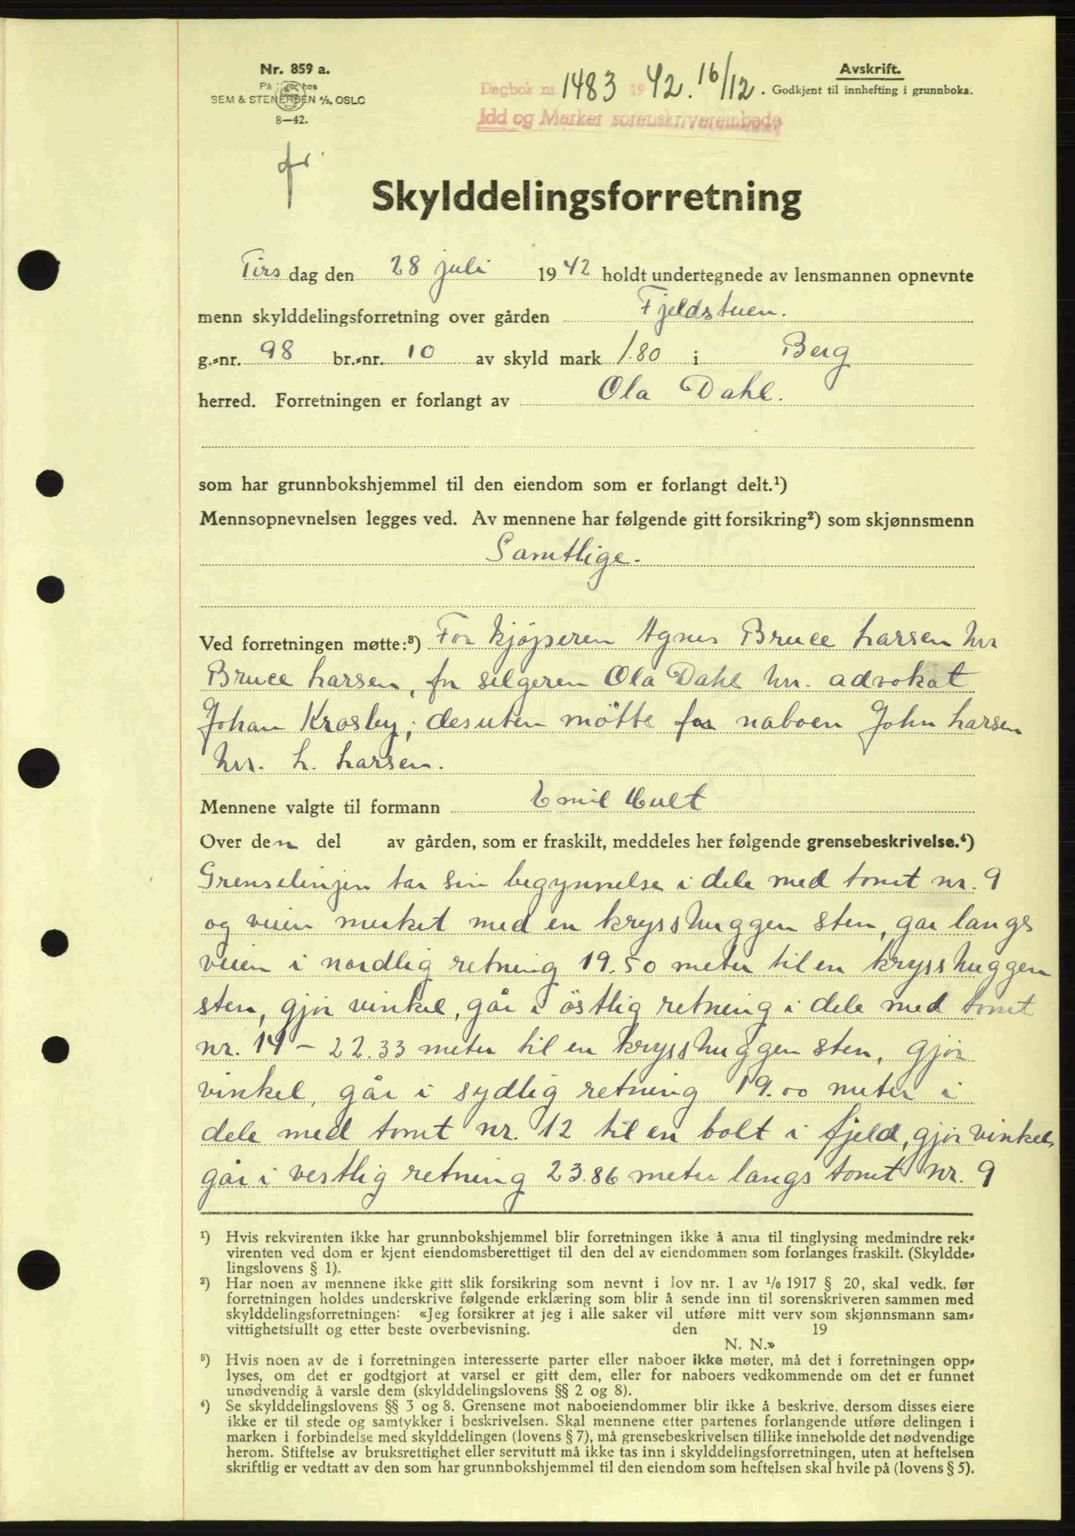 Nr. 859 a.
SEM & STENERSEN A/S, OSLO
8—42.
Dagbok nr. 1483 1942. 16/12
Idd og Marker sorenskriverembede
Avskrift.
Godkjent til innhefting i grunnboka.
Skylddelingsforretning
Tirsdag den 28 juli 1942 holdt undertegnede av lensmannen opnevnte
menn skylddelingsforretning over gården Fjeldstuen.
g.-nr. 98 br.-nr. 10 av skyld mark 1.80 i Berg
herred. Forretningen er forlangt av Ola Dahl.
som har grunnbokshjemmel til den eiendom som er forlangt delt.¹)
Mennsopnevnelsen legges ved. Av mennene har følgende gitt forsikring²) som skjønnsmenn
Samtlige.
Ved forretningen møtte:³) For kjöpseren Agnes Bruce Larsen hr
Bruce Larsen, for selgeren Ola Dahl hr. advokat
Johan Krosby; desuten mötte for naboen John Larsen
hr. L. Larsen.
Mennene valgte til formann Emil Hult
Over den del av gården, som er fraskilt, meddeles her følgende grensebeskrivelse.⁴)
Grenselinjen tar sin begynnelse i dele med tomt nr. 9
og veien merket med en krysshuggen sten, går langs
veien i nordlig retning 19.50 meter til en krysshuggen
sten, gjör vinkel, går i östlig retning i dele med tomt
nr. 14 - 22.33 meter til en krysshuggen sten, gjör
vinkel, går i sydlig retning 19.00 meter i
dele med tomt nr. 12 til en bolt i fjeld, gjör vinkel,
går i vestlig retning 23.86 meter langs tomt nr. 9
¹) Hvis rekvirenten ikke har grunnbokshjemmel blir forretningen ikke å anta til tinglysing medmindre rek-
virenten ved dom er kjent eiendomsberettiget til den del av eiendommen som forlanges fraskilt. (Skyldde-
lingslovens § 1).
²) Har noen av mennene ikke gitt slik forsikring som nevnt i lov nr. 1 av 1/6 1917 § 20, skal vedk. før
forretningen holdes underskrive følgende erklæring som blir å sende inn til sorenskriveren sammen med
skylddelingsforretningen: «Jeg forsikrer at jeg i alle saker vil utføre mitt verv som skjønnsmann sam-
vittighetsfullt og etter beste overbevisning. den 19
N. N.»
³) Hvis noen av de i forretningen interesserte parter eller naboer ikke møter, må det i forretningen opp-
lyses, om det er godtgjort at varsel er gitt dem, eller for naboers vedkommende om det er funnet
unødvendig å varsle dem (skylddelingslovens §§ 2 og 8).
⁴) Se skylddelingslovens §§ 3 og 8. Grensene mot naboeiendommer blir ikke å beskrive, dersom disses eiere
ikke er til stede og samtykker i beskrivelsen. Skal mennene etter partenes forlangende utføre delingen i
marken i forbindelse med skylddelingen (lovens § 7), må grensebeskrivelsen tillike inneholde det nødvendige
herom. Stiftelse av bruksrettighet eller servitutt må ikke tas inn i skylddelingsforretningen, uten at heftelsen
skriftlig er vedtatt av den som har grunnbokshjemmel til den eiendom som heftelsen skal hvile på (lovens § 5).